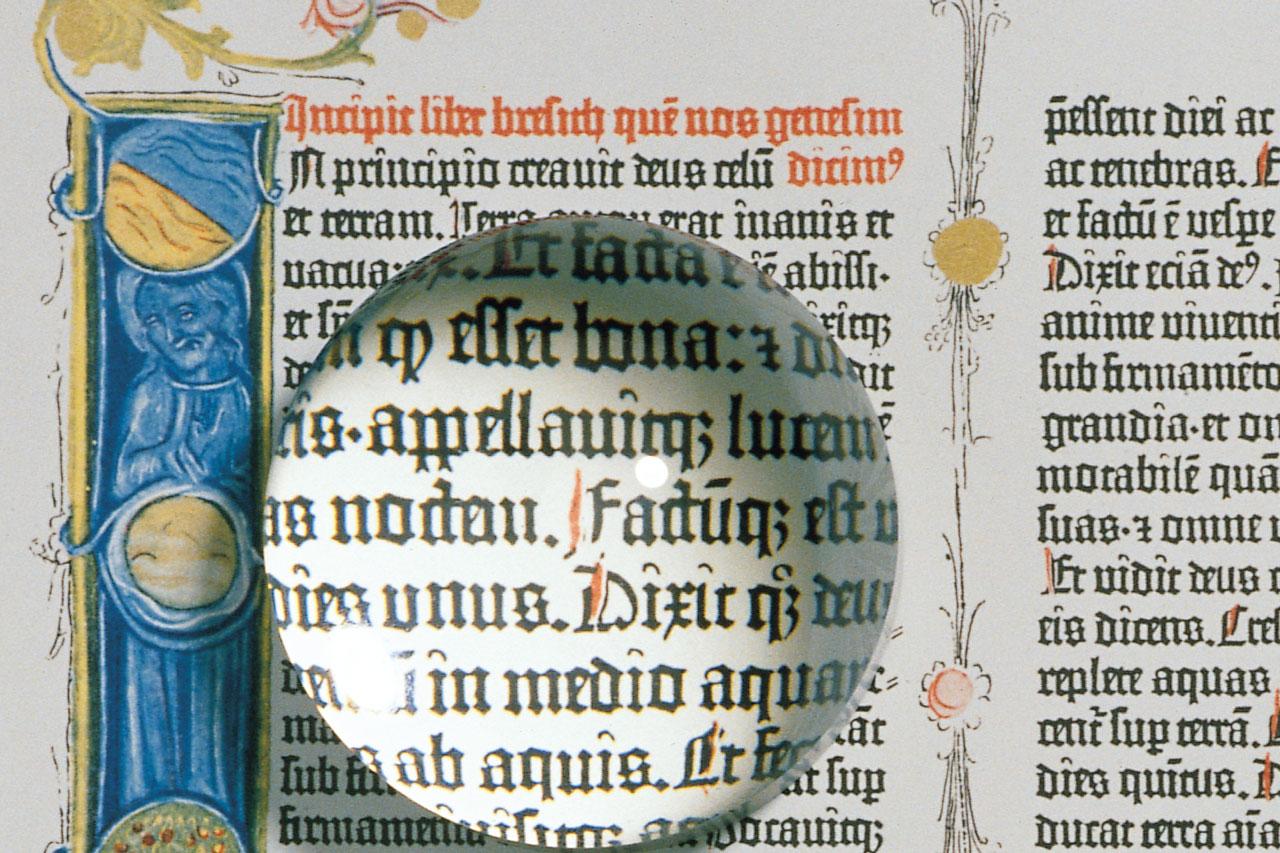 Incipit liber bresith quē nos genesim
In principio creauit deus celū dicimꝰ
et terram. Terra autem erat inanis et
abissi.
Et facta
ꝙ esset bona: ⁊
appellauitqꝫ lucem
noctem. Factūqꝫ est
dies vnus. Dixit qꝫ deu
in medio aqua
ab aquis. Et fec
sub sup
p̄essent diei ac
ac tenebras.
et factū ē uespe
Dixit eciā deꝰ.
anime viuenti
sub firmamēto
grandia·et om
morabilē quā
suas·⁊ omne
Et vidit deus
eis dicens. Cre
replete aquas
cent̄ sup terrā.
dies quintus.
ducat terra aīa